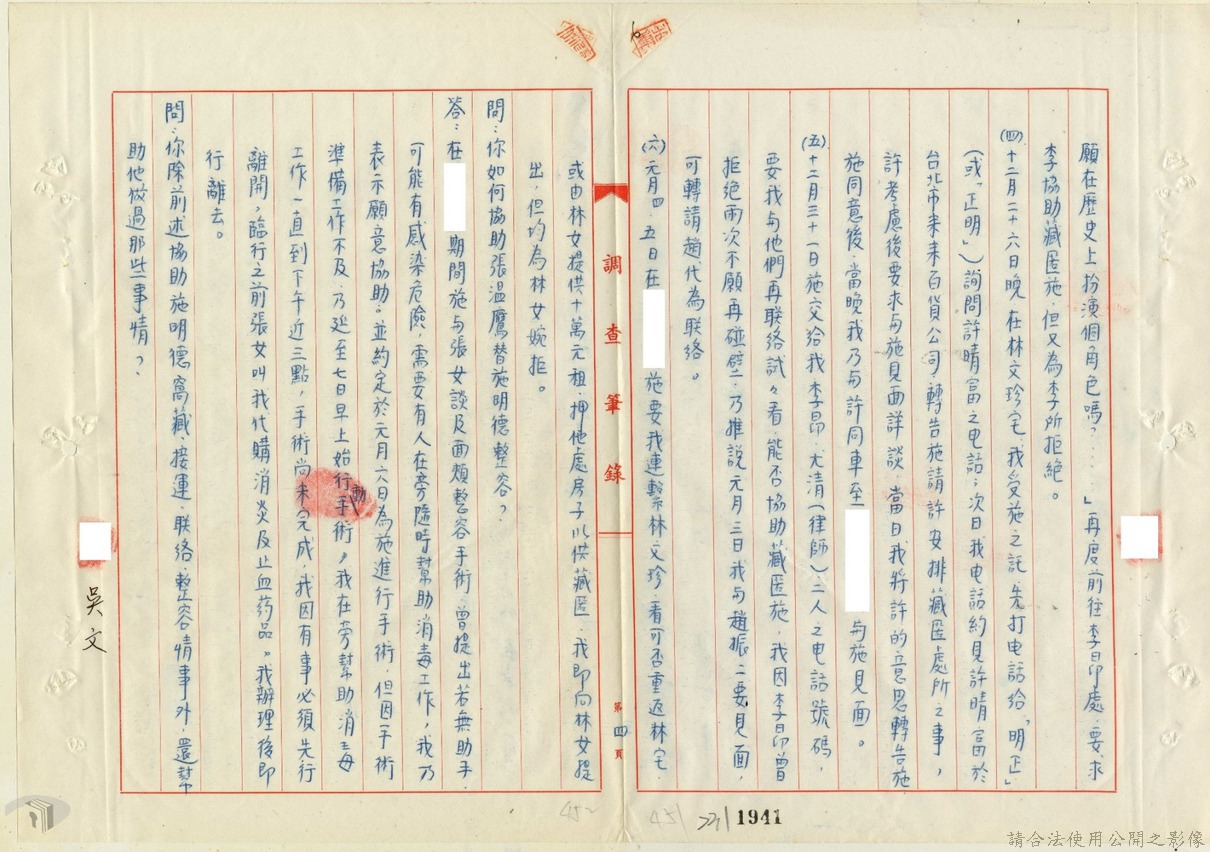 願在歷史上扮演個角色嗎？‥‥」再度前往李昂處、要求
李協助藏匿施、但又為李所拒絕。
(四)十二月二十六日晚、在林文珍宅、我受施之託、先打电話給「明正」
(或「正明」)詢問許晴富之电話；次日我电話約見許晴富於
台北市來來百貨公司、轉告施請許安排藏匿處所之事，
許考慮後要求与施見面詳談、當日我將許的意思轉告施
施同意後、當晚我乃与許同車至
与施見面。
(五)十二月三十一日施交給我李昂、尤清(律師)二人之电話號碼，
要我与他們再联絡試々看、能否協助藏匿施，我因李昂曾
拒絕兩次不願再碰壁、乃推說元月三日我与趙振二要見面，
可轉請趙代為联絡。
(六)元月四、五日在
施要我連繫林文珍、看可否重返林宅
調查筆錄
第四頁
或由林女提供十萬元租、押他處房子以供藏匿、我即向林女提
出，但均為林女婉拒。
問：你如何協助張溫鷹替施明德整容？
答：在
期間施与張女談及面頰整容手術、曾提出若無助手、
可能有感染危險，需要有人在旁隨時幫助消毒工作，我乃
表示願意協助。並約定於元月六日為施進行手術、但因手術
準備工作不及、乃延至七日早上始行動手術，我在旁幫助消毒
工作、一直到下午近三點，手術尚未完成，我因有事必須先行
離開，臨行之前張女叫我代購消炎及止血药品。我辦理後即
行離去。
問：你除前述協助施明德窩藏、接運、联絡、整容情事外，還幫
助他做過那些事情？
吳文
1941
請合法使用公開之影像